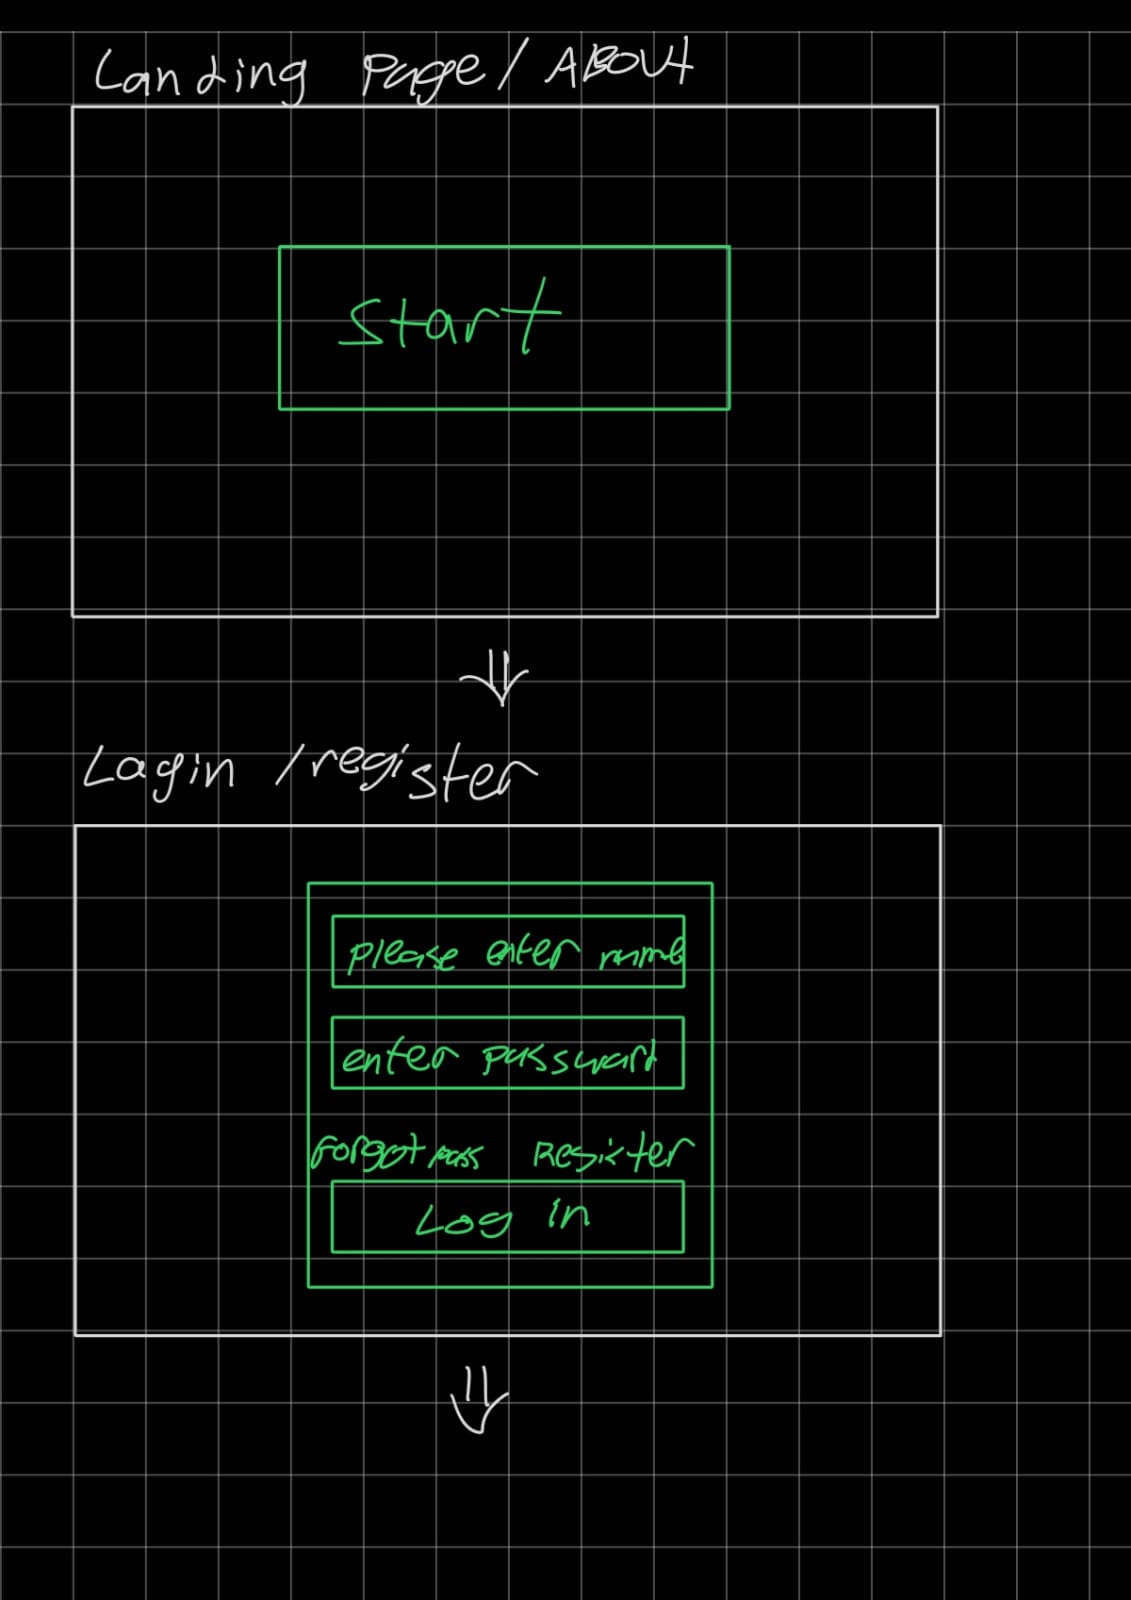 Landing Page / ABOUT
Start
Login / register
please enter name
enter password
Forgot pass Register
Log in